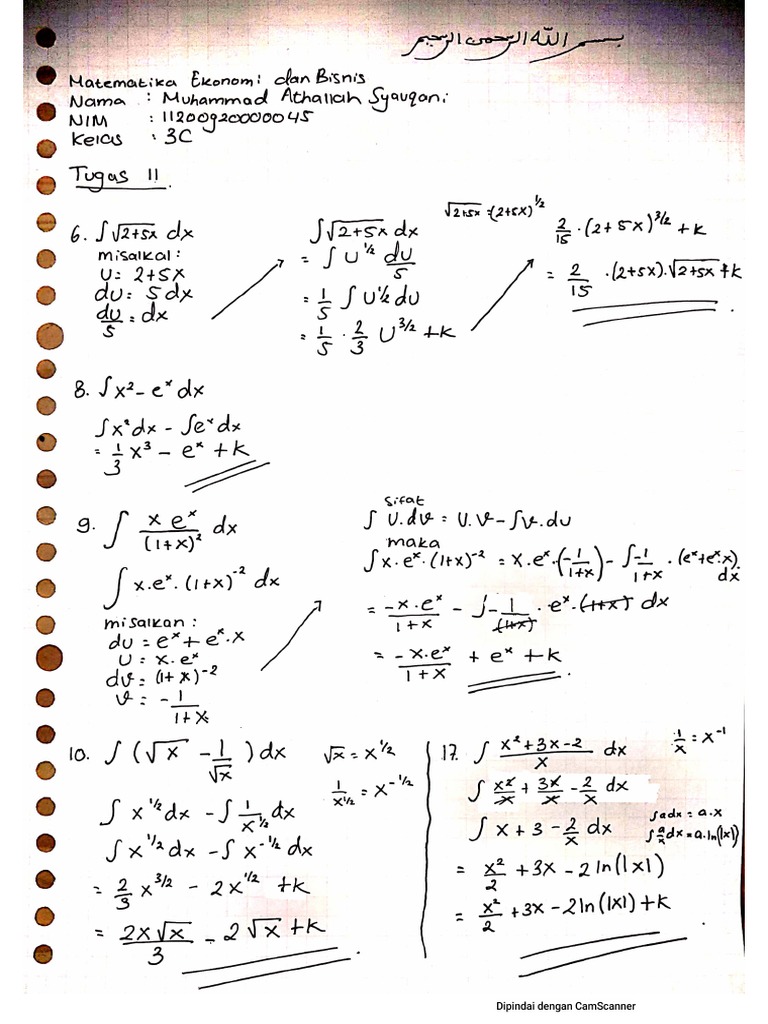 بسم الله الرحمن الرحيم
Matematika Ekonomi dan Bisnis
Nama : Muhammad Athallah Syauqani
NIM : 11200920000045
Kelas : 3C
Tugas 11
6. ∫√(2+5x) dx
misalkal:
U = 2+5x
du = 5 dx
du/5 = dx
∫√(2+5x) dx
= ∫ U^1/2 du/5
= 1/5 ∫ U^1/2 du
= 1/5 · 2/3 U^3/2 + k
√(2+5x) = (2+5x)^1/2
2/15 · (2+5x)^3/2 + k
= 2/15 · (2+5x) · √(2+5x) + k
8. ∫x² - e^x dx
∫x² dx - ∫e^x dx
= 1/3 x³ - e^x + k
9. ∫ x e^x/(1+x)² dx
∫ x.e^x . (1+x)^-2 dx
misalkan :
du = e^x + e^x . x
U = x.e^x
dv = (1+x)^-2
v = - 1/(1+x)
sifat
∫ U.dv = U.v - ∫v.du
maka
∫x.e^x.(1+x)^-2 = x.e^x.(-1/(1+x)) - ∫-1/(1+x) . (e^x+e^x.x) dx
= -x.e^x/(1+x) - ∫-1/(1+x) . e^x.(1+x) dx
= -x.e^x/(1+x) + e^x + k
10. ∫ (√x - 1/√x) dx
√x = x^1/2
1/x^1/2 = x^-1/2
∫ x^1/2 dx - ∫ 1/x^1/2 dx
∫ x^1/2 dx - ∫ x^-1/2 dx
= 2/3 x^3/2 - 2x^1/2 + k
= 2x√x/3 - 2√x + k
17. ∫ (x²+3x-2)/x dx
1/x = x^-1
∫ x²/x + 3x/x - 2/x dx
∫ x + 3 - 2/x dx
∫adx = a.x
∫a/x dx = a.ln(|x|)
= x²/2 + 3x - 2 ln(|x|)
= x²/2 + 3x - 2 ln(|x|) + k
Dipindai dengan CamScanner